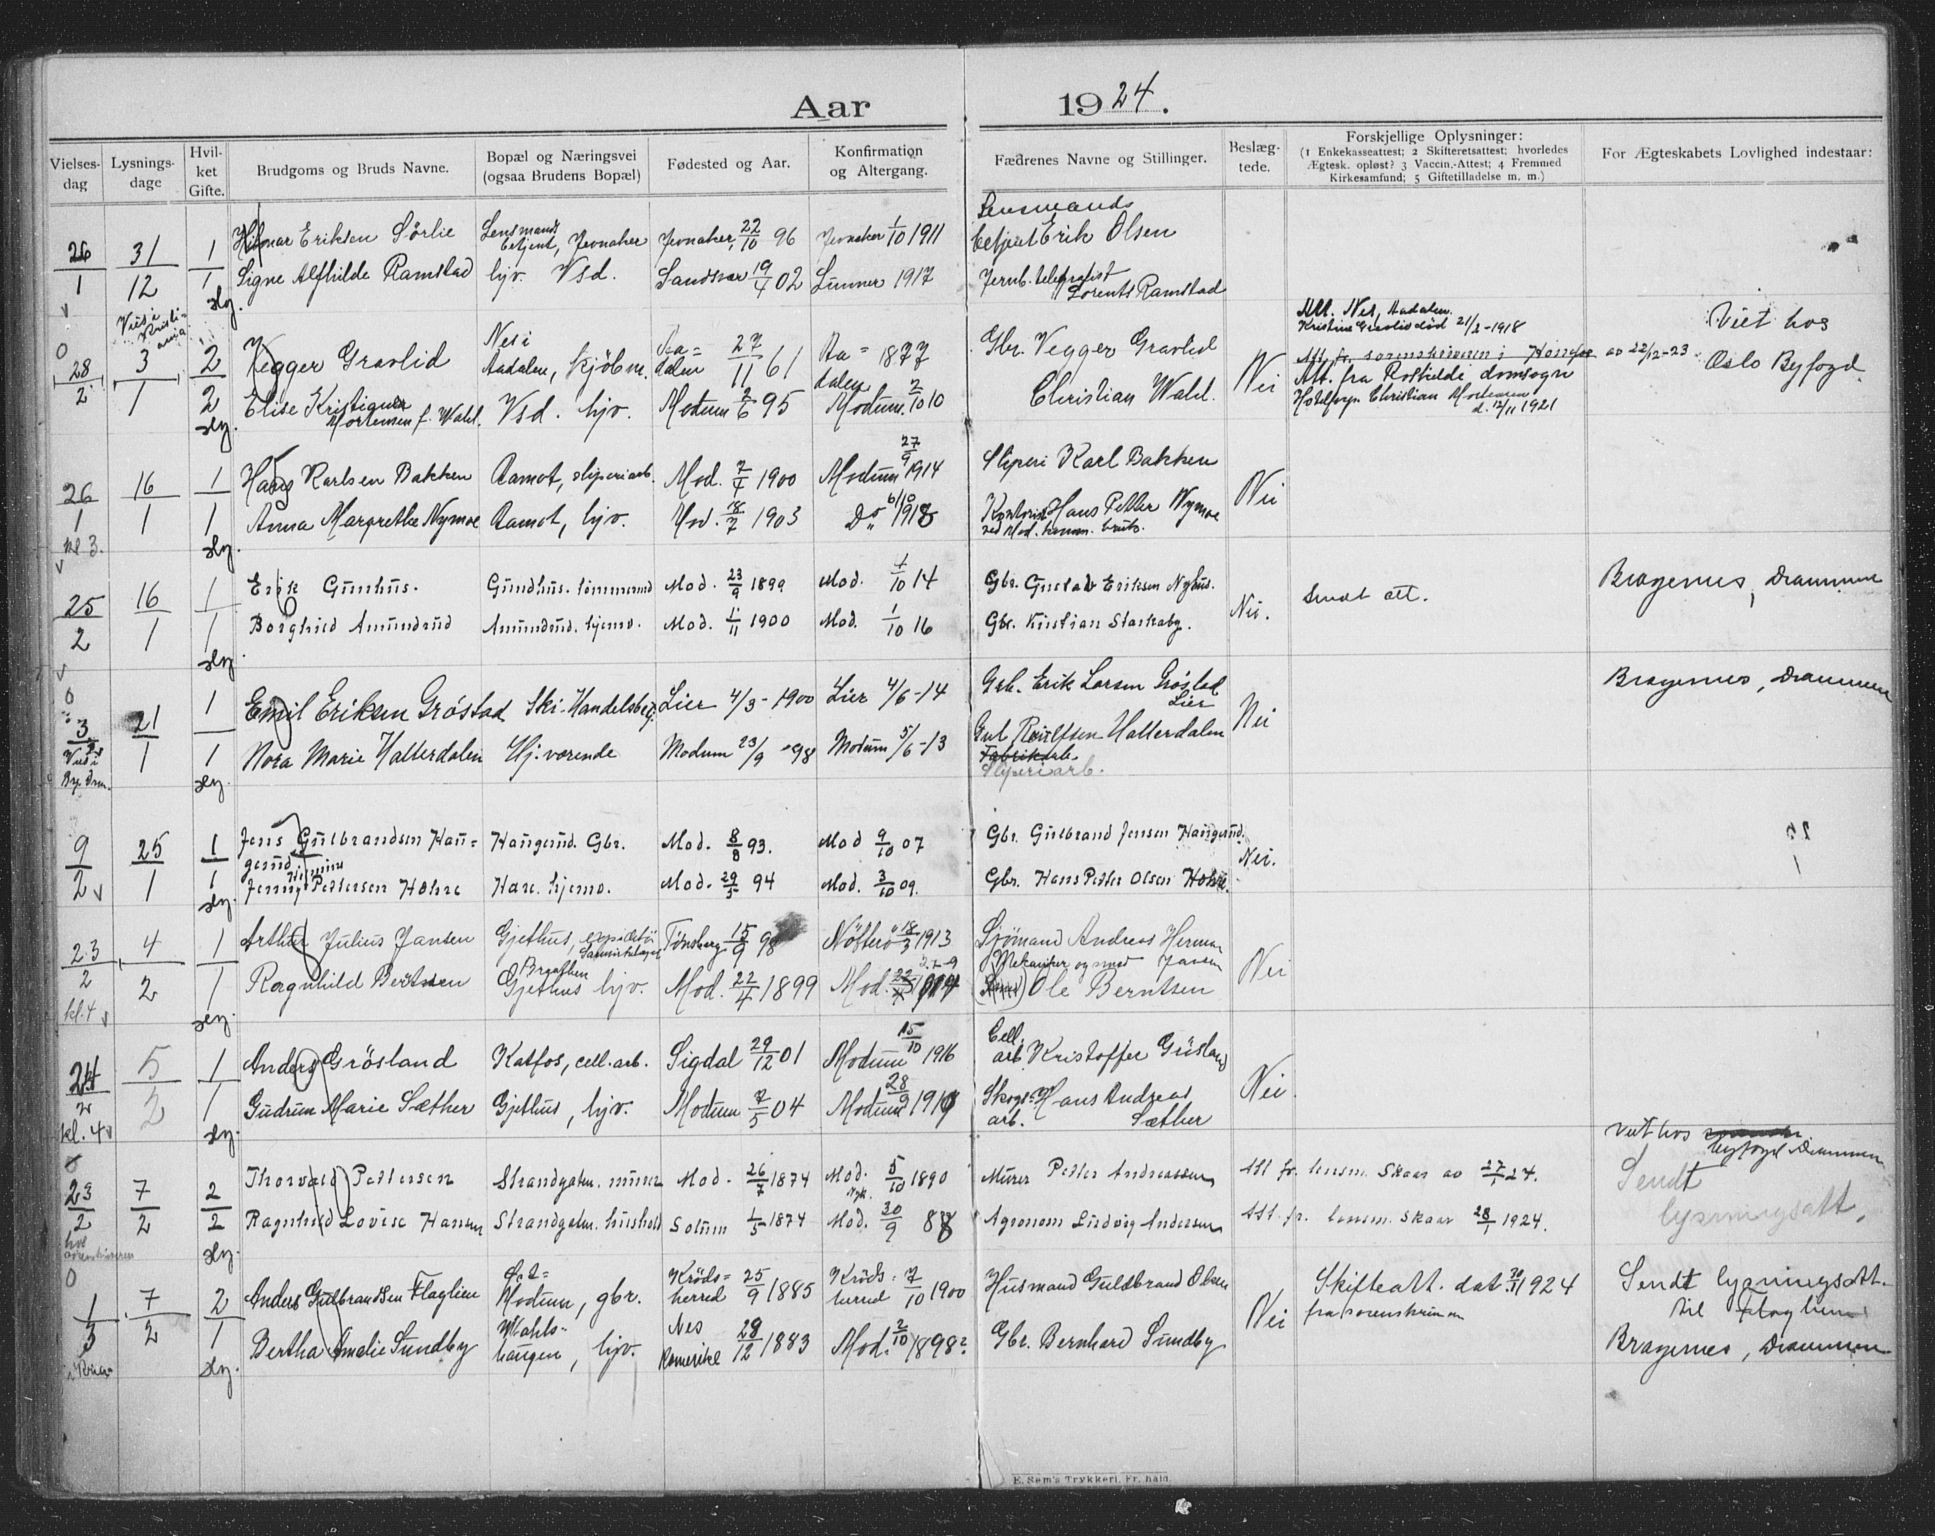 Aar 1924.
Vielses-dag
Lysnings-dage
Hvil-ket Gifte.
Brudgoms og Bruds Navne.
Bopæl og Næringsvei (ogsaa Brudens Bopæl)
Fødested og Aar.
Konfirmation og Altergang.
Fædrenes Navne og Stillinger.
Beslæg-tede.
Forskjellige Oplysninger:
(1 Enkekasseattest; 2 Skifteretsattest; hvorledes
Ægtesk. opløst? 3 Vaccin.-Attest; 4 Fremmed
Kirkesamfund; 5 Giftetilladelse m. m.)
For Ægteskabets Lovlighed indestaar:
26/1 31/12 1 Hilmar Eriksen Sörlie Lensmands betjent, Jevnaker Jevnaker, 22/10 96 Jevnaker 1/10 1911 Lensmands betjent Erik Olsen
1 Signe Alfhilde Ramstad hjv. Vsd. Sandsvær 19/4 02 Lunner 1917 Jernb. telegrafist Lorents Ramstad
Viet i Kristiania
28/2 3/1 2 Vegger Gravlid Nes i Aadalen, kjöbm. Aadalen 27/11 61 Aadalen 1877 Gbr. Vegger Gravlid Nei Att. Nes, Aadalen. Kristine Gravlid död 21/2-1918 Viet hos Oslo Byfogd.
2 Elise Kristiane Mortensen f. Wahl. Vsd. hjv. Modum 2/6 95 Modum 2/10 10 Christian Wahl. Att. fra Roskilde domsogn Christian Mortensen d. 12/11 1921
26/1 kl 3. 16/1 1 Hans Karlsen Bakken Aamot, sliperiarb. Mod. 7/4 1900 Modum 27/9 1914 Sliperi Karl Bakken Nei
1 Anna Margrethe Nymoe Aamot, hjv. Mod. 18/7 1903 Do 6/10 1918 Hans Petter Nymoe ved Mod. komm. bruk.
25/2 16/1 1 Erik Gunhus. Gundhus. tömmermd Mod. 23/9 1899 Mod. 1/10 14 Gbr. Gustad Eriksen Nyhus. Nei. Sendt att. Bragernes, Drammen
1 Borghild Amundrud Amundrud. hjemv. Mod. 1/11 1900 Mod. 1/10 16 Gbr. Kristian Starkaby.
3/2 21/1 1 Emil Eriksen Gröstad Ski-Handelsbetj. Lier 4/3-1900 Lier 4/6-14 Grb. Erik Larsen Gröstad Lier Nei Bragernes, Drammen
1 Nora Marie Hatterdalen Hj. værende Modum 23/9-98 Modum 5/6-13 Gul Hatterdalen Fabrikarb. Sliperiarb.
9/2 25/1 1 Jens Gulbrandsen Haugerud. Haugerud. Gbr. Mod. 8/8 93. Mod 9/10 07 Gbr. Gulbrand Jensen Haugerud. Nei.
1 Jenny Pettersen Hohre Hare. hjemv. Mod. 29/5 94 Mod. 3/10 09. Gbr. Hans Petter Olsen Hohre.
23/2 kl. 4 4/2 1 Arthur Julius Jansen Gjethus, Tönsberg 15/9 98 Nötterö 18/3 1913 Sjömand Andreas Herman Jansen Nei
1 Ragnhild Berntsen Gjethus hjv. Mod. 22/4 1899 Mod. 1914 Mekaniker og smed Ole Berntsen
24/2 kl. 4 5/2 1 Anders Grösland Katfos, cell. arb. Sigdal 29/12 01 Modum 15/10 1916 Cell. arb. Kristoffer Grösland Nei.
1 Gudrun Marie Sæther Gjethus, hjv. Modum 7/5 04 Modum 28/9 1919 Skogs-arb. Hans Andreas Sæther
23/2 7/2 2 Thorvald Pettersen Strandgaten. murer Mod. 26/7 1874 Mod. 5/10 1890 Murer Petter Andreassen Att fr. lensm. Skaar av 27/1 24. viet hos byfogd Drammen
2 Ragnhild Lovise Hansen Strandgaten. hushold Solum 1/5 1874 Mod. 30/9 88 Agronom Ludvig Andersen Att. fr. lensm. Skaar 28/1 1924. Sendt lysningsatt.
1/3 7/2 2 Anders Gulbrandsen Flaglien Öst-Modum, gbr. Krödsherred 25/9 1885 Krödsherred 7/10 1900 Husmand Guldbrand Olsen Nei Skifteatt. dat 30/1 1924 fra sorenskriveren Sendt lysningsatt. til Flaglien
1 Bertha Amalie Sundby Wahlshaugen, hjv. Nes Romerike 28/12 1883 Mod. 2/10 1898? Gbr. Bernhard Sundby Bragernes, Drammen
E. Sem's Trykkeri, Fr.hald.